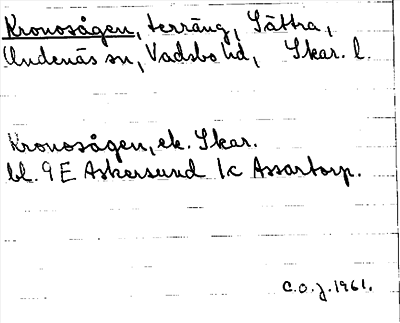 Kronosågen, terräng, Sättra,
Undenäs sn, Vadsbo hd, Skar. l.
Kronosågen, ek. Skar.
bl. 9E Askersund 1c Assartorp.
C.O.J. 1961.